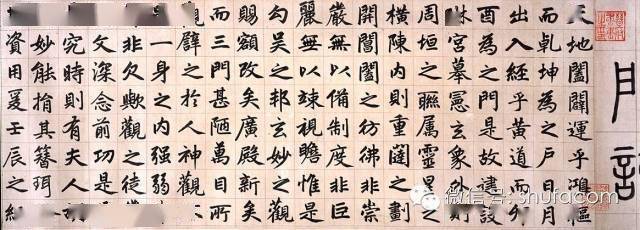 天地闔闢運乎鴻樞
而乾坤為之戶日月
出入經乎黃道而卯
酉為之門是故建設
琳宮摹憲玄象外則
周垣之聯屬靈星之
橫陳內則重闥之劃
開閶闔之彷彿非崇
嚴無以備制度非巨
麗無以竦視瞻惟是
勾吳之邦玄妙之觀
賜額改矣廣殿新矣
而三門甚陋萬目所
觀譬之於人神觀
一身之內強弱
非欠歟觀之徒
文深念前功是
究時則有夫人
妙能捐其簪珥
資用爰壬辰之紀
微信号: shufacn